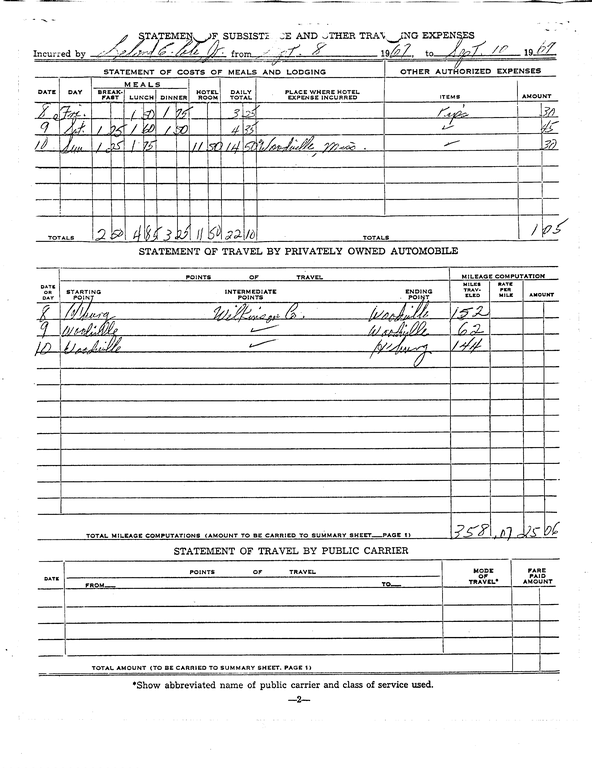 STATEMENT OF SUBSISTENCE AND OTHER TRAVELING EXPENSES
Incurred by Leland E. Cole Jr. from Sept. 8 1967 to Sept. 10 1967
STATEMENT OF COSTS OF MEALS AND LODGING OTHER AUTHORIZED EXPENSES
DATE DAY MEALS BREAKFAST LUNCH DINNER HOTEL ROOM DAILY TOTAL PLACE WHERE HOTEL EXPENSE INCURRED ITEMS AMOUNT
8 Fri. 1 50 1 75 3 25 Tips 30
9 Sat. 1 25 1 60 1 50 4 35 ✓ 45
10 Sun 1 25 1 75 11 50 14 50 Woodville, Miss. ✓ 30
TOTALS 2 50 4 85 3 25 11 50 22 10 TOTALS 1 05
STATEMENT OF TRAVEL BY PRIVATELY OWNED AUTOMOBILE
POINTS OF TRAVEL MILEAGE COMPUTATION
DATE OR DAY STARTING POINT INTERMEDIATE POINTS ENDING POINT MILES TRAVELED RATE PER MILE AMOUNT
8 H'burg Wilkinson Co. Woodville 152
9 Woodville ✓ Woodville 62
10 Woodville ✓ H'burg 144
TOTAL MILEAGE COMPUTATIONS (AMOUNT TO BE CARRIED TO SUMMARY SHEET—PAGE 1) 358 .07 25 06
STATEMENT OF TRAVEL BY PUBLIC CARRIER
DATE POINTS OF TRAVEL MODE OF TRAVEL* FARE PAID AMOUNT
FROM— TO—
TOTAL AMOUNT (TO BE CARRIED TO SUMMARY SHEET. PAGE 1)
*Show abbreviated name of public carrier and class of service used.
—2—